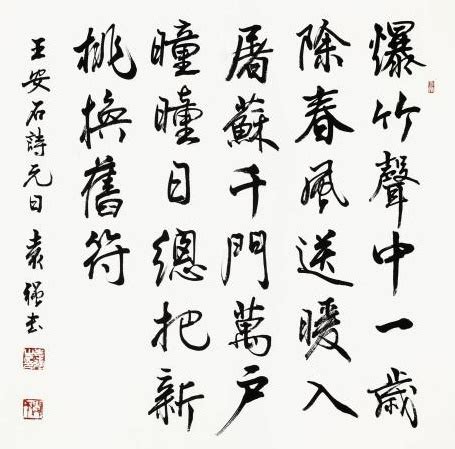 爆竹聲中一歲
除春風送暖入
屠蘇千門萬戶
曈曈日總把新
桃換舊符
王安石詩元日 袁强书